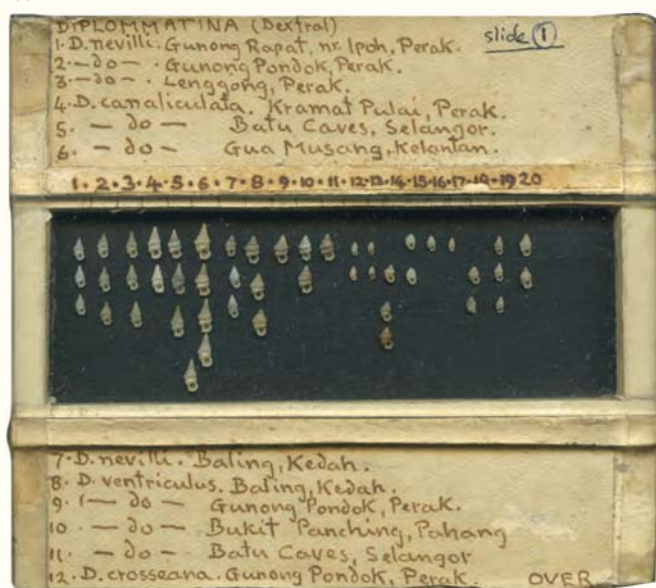 DIPLOMMATINA (Dextral) slide 1
1. D. nevilli. Gunong Rapat, nr. Ipoh, Perak.
2. — do — . Gunong Pondok, Perak.
3. — do — . Lenggong, Perak.
4. D. canaliculata. Kramat Pulai, Perak.
5. — do — Batu Caves, Selangor.
6. — do — Gua Musang, Kelantan.
1 · 2 · 3 · 4 · 5 · 6 · 7 · 8 · 9 · 10 · 11 · 12 · 13 · 14 · 15 · 16 · 17 · 18 · 19 20
7. D. nevilli. Baling, Kedah.
8. D. ventriculus. Baling, Kedah.
9. — do — Gunong Pondok, Perak.
10 . — do — Bukit Panching, Pahang
11. — do — Batu Caves, Selangor
12. D. crosseana. Gunong Pondok, Perak. OVER